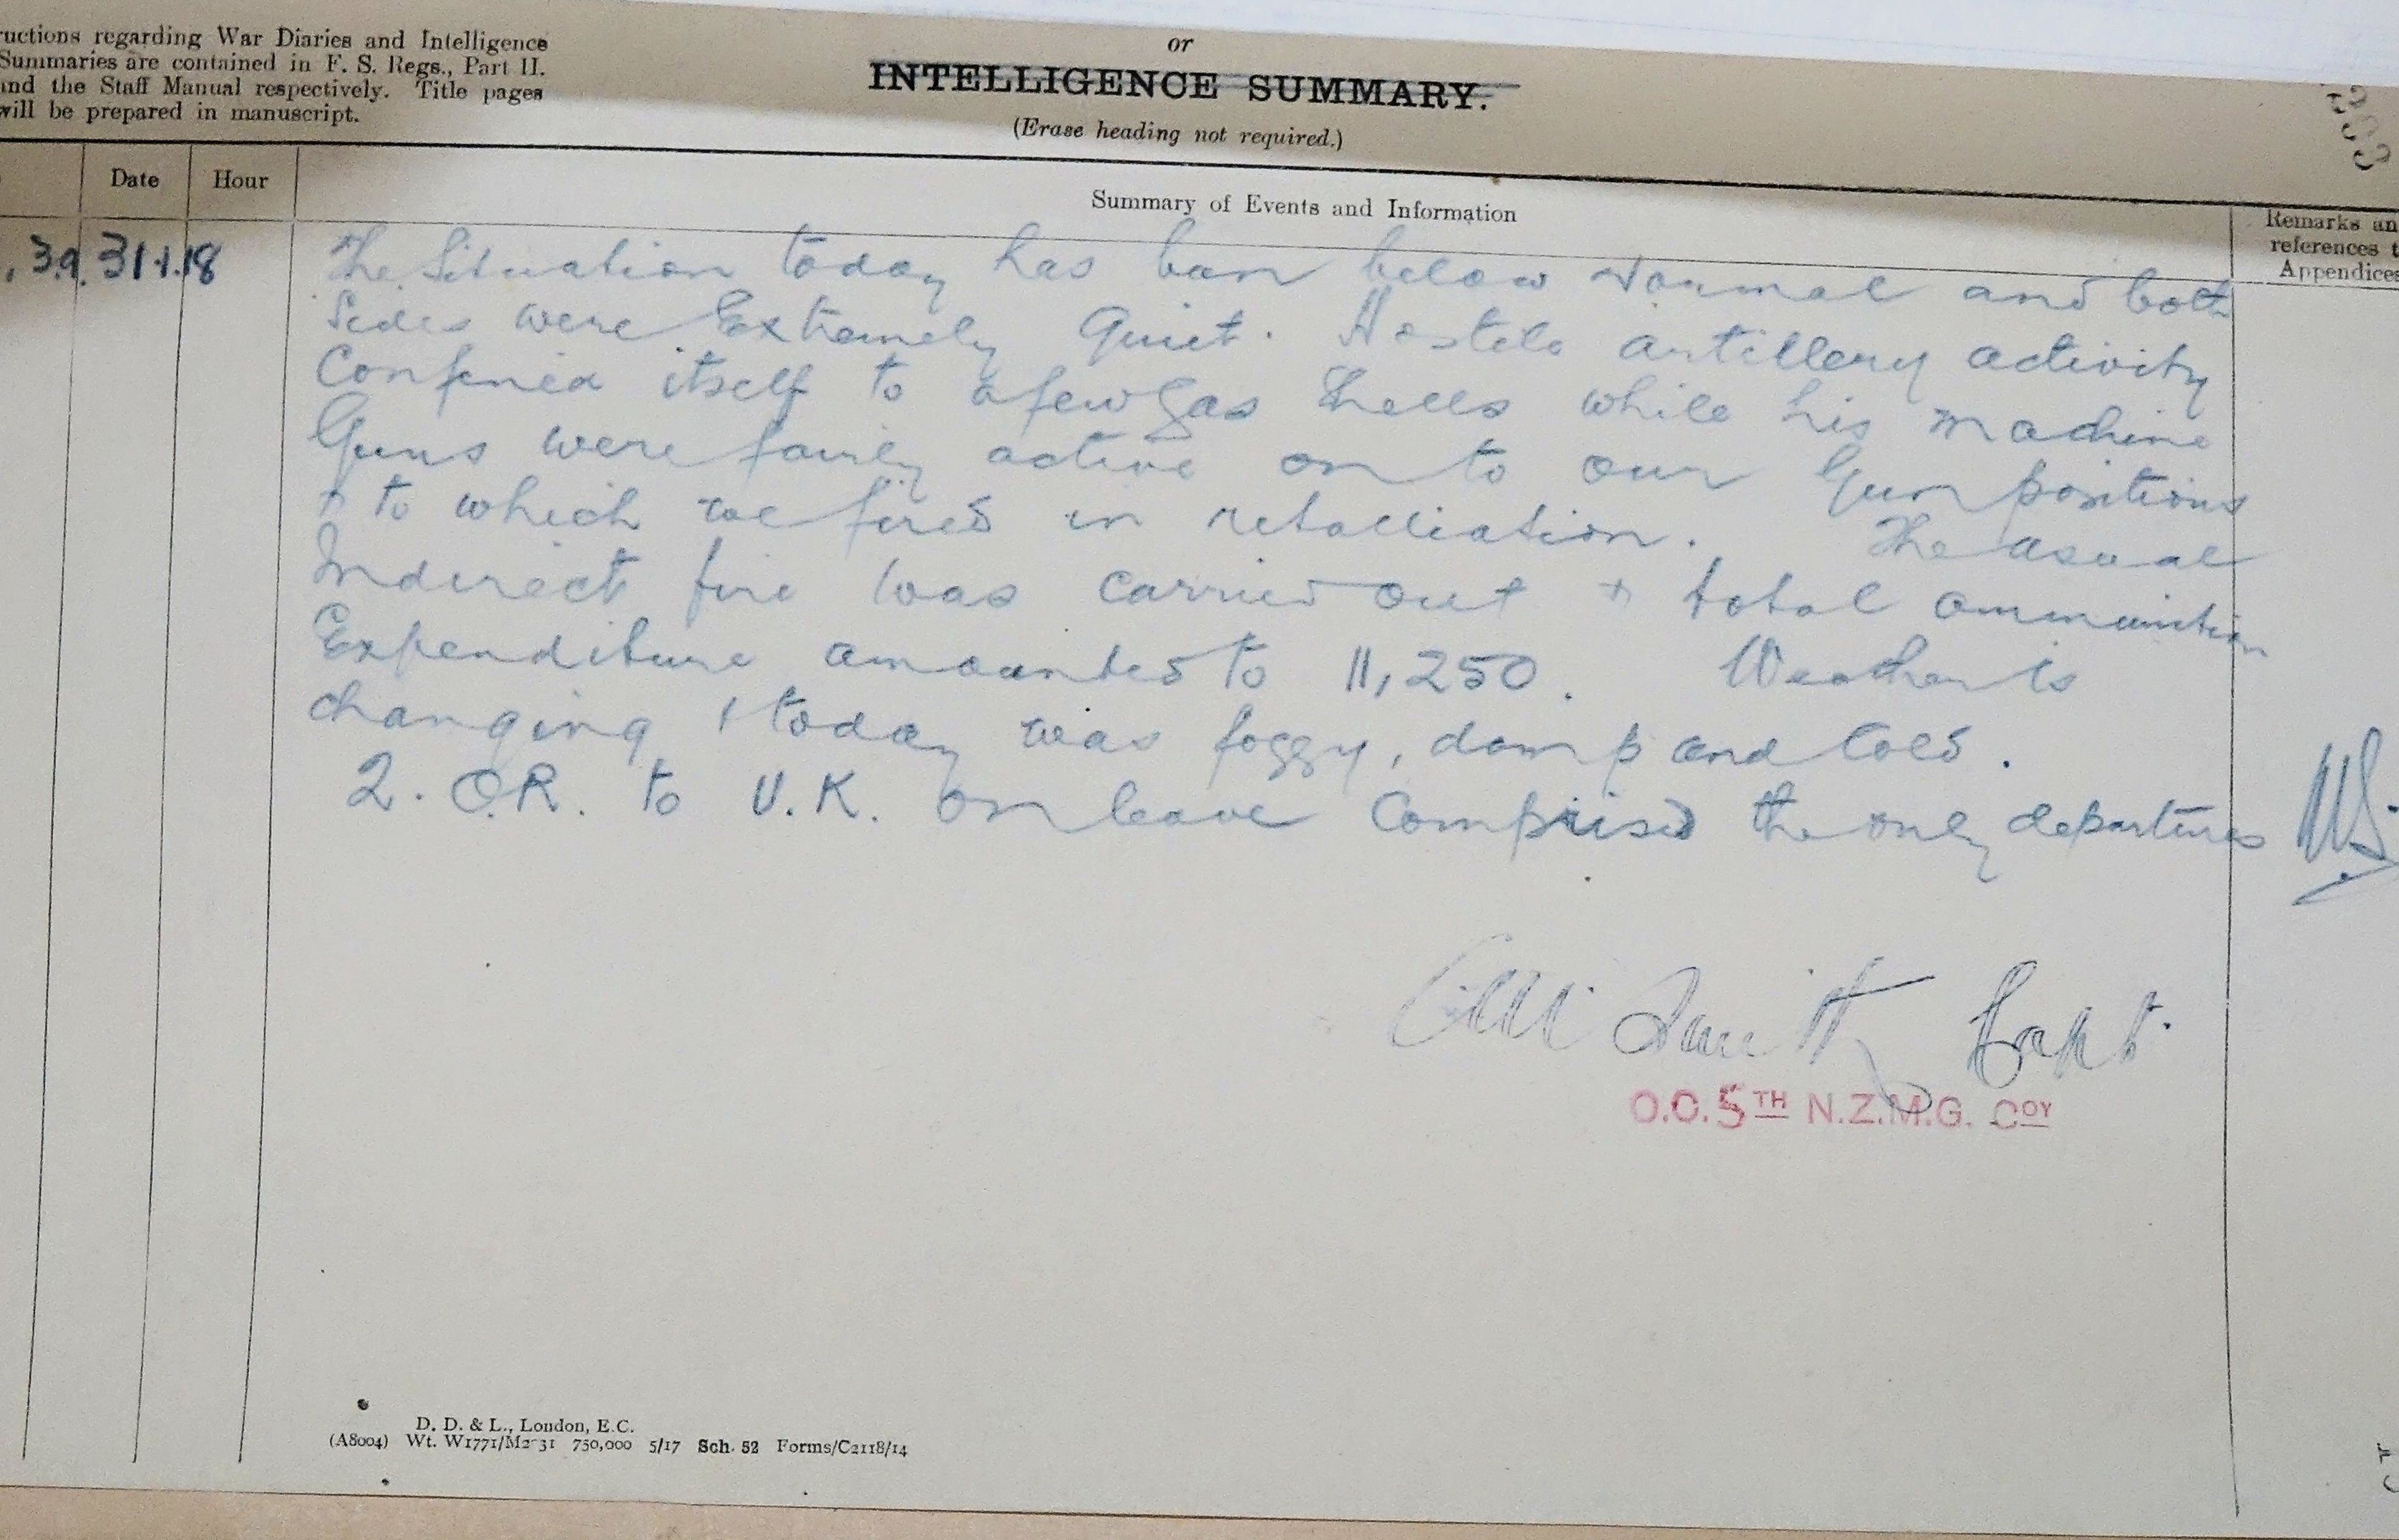 ructions regarding War Diaries and Intelligence
Summaries are contained in F. S. Regs., Part II.
and the Staff Manual respectively. Title pages
will be prepared in manuscript.
or
INTELLIGENCE SUMMARY.
(Erase heading not required.)
Date Hour
Summary of Events and Information
Remarks an
references t
Appendices
39. 31.1.18
The Situation today has been below Normal and both
Sides were Extremely Quiet. Hostile artillery activity
Confined itself to a few Gas Shells while his machine
Guns were fairly active on to our Gun positions
+ to which we fired in retalliation. The usual
Indirect fire was carried out + total ammunition
Expenditure amounted to 11,250. Weather is
changing + today was foggy, damp and cold.
2. O.R. to U.K. on leave Comprised the only departures
Smith Capt.
O.C. 5TH N.Z.M.G. COY
D. D. & L., London, E.C.
(A8004) Wt. W1771/M2 31 750,000 5/17 Sch. 52 Forms/C2118/14